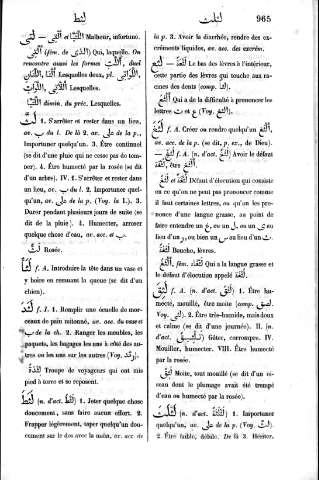 لثط
لثلث
965
لُتَيَّا et اَللُّتَيَّا Malheur, infortune.
اَلَّتِى (fém. de اَلَّذِى) Qui, laquelle. On
rencontre aussi les formes
Lesquelles deux, pl.
Lesquelles.
dimin. du préc., Lesquelles.
لَثَّ 1. S'arrêter et rester dans un lieu,
av. ب du l. De là 2. av. على de la p.,
Importuner quelqu'un. 3. Être continuel
(se dit d'une pluie qui ne cesse pas de tom-
ber). 4. Être humecté par la rosée (se dit
d'un arbre). IV. 1. S'arrêter et rester dans
un lieu, av. ب du l. 2. Importuner quel-
qu'un, av. على de la p. (Voy. la I.). 3.
Durer pendant plusieurs jours de suite (se
dit de la pluie). 4. Humecter, arroser
quelque chose d'eau, av. acc. et ب.
لَثٌّ Rosée.
f. A. Introduire la tête dans un vase et
y boire en remuant la queue (se dit d'un
chien).
لَثَدَ f. I. 1. Remplir une écuelle de mor-
ceaux de pain mitonné, av. acc. du vase et
ب de la ch. 2. Ranger les meubles, les
paquets, les bagages les uns à côté des au-
tres ou les uns sur les autres (Voy. رثد).
لِثْدَةٌ Troupe de voyageurs qui ont mis
pied à terre et se reposent.
لَثَطَ (n. d'act. لَثْطٌ) 1. Jeter quelque chose
doucement, sans faire aucun effort. 2.
Frapper légèrement, taper quelqu'un dou-
cement sur le dos avec la main, av. acc. de
la p. 3. Avoir la diarrhée, rendre des ex-
créments liquides, av. acc. des excrém.
لثع — Le bas des lèvres à l'intérieur,
cette partie des lèvres qui touche aux ra-
cines des dents
Qui a de la difficulté à prononcer les
lettres ث et ع (Voy. ألثغ).
لثغ f. A. Créer ou rendre quelqu'un ألثغ,
av. acc. de la p. (se dit, p. ex., de Dieu).
لثغ — f. A. (n. d'act. لثغ) Avoir le défaut
être ألثغ.
لثغة Défaut d'élocution qui consiste
en ce qu'on ne peut pas prononcer comme
il faut certaines lettres, ou qu'on les pro-
nonce d'une langue grasse, au point de
faire entendre un غ, ou un ل, ou un ى au
lieu d'un ر, ou bien un س au lieu d'un ث.
لثغة Bouche, lèvres.
ألثغ fém. لثغاء Qui a la langue grasse et
le défaut d'élocution appelé لثغة.
لثق f. A. (n. d'act. لثق) 1. Être hu-
mecté, mouillé, être moite
2. Être très-humide, mais doux
et calme (se dit d'une journée). II. (n.
d'act. تلثيق) Gâter, corrompre. IV.
Mouiller, humecter. VIII. Être humecté
par la rosée.
لثق Moite, tout mouillé (se dit d'un oi-
seau dont le plumage avait été trempé
d'eau ou humecté par la rosée).
لثلث (n. d'act. لثلثة) 1. Importuner
quelqu'un, av. على de la p. (Voy. لث).
2. Être faible, débile. De là 3. Hésiter,